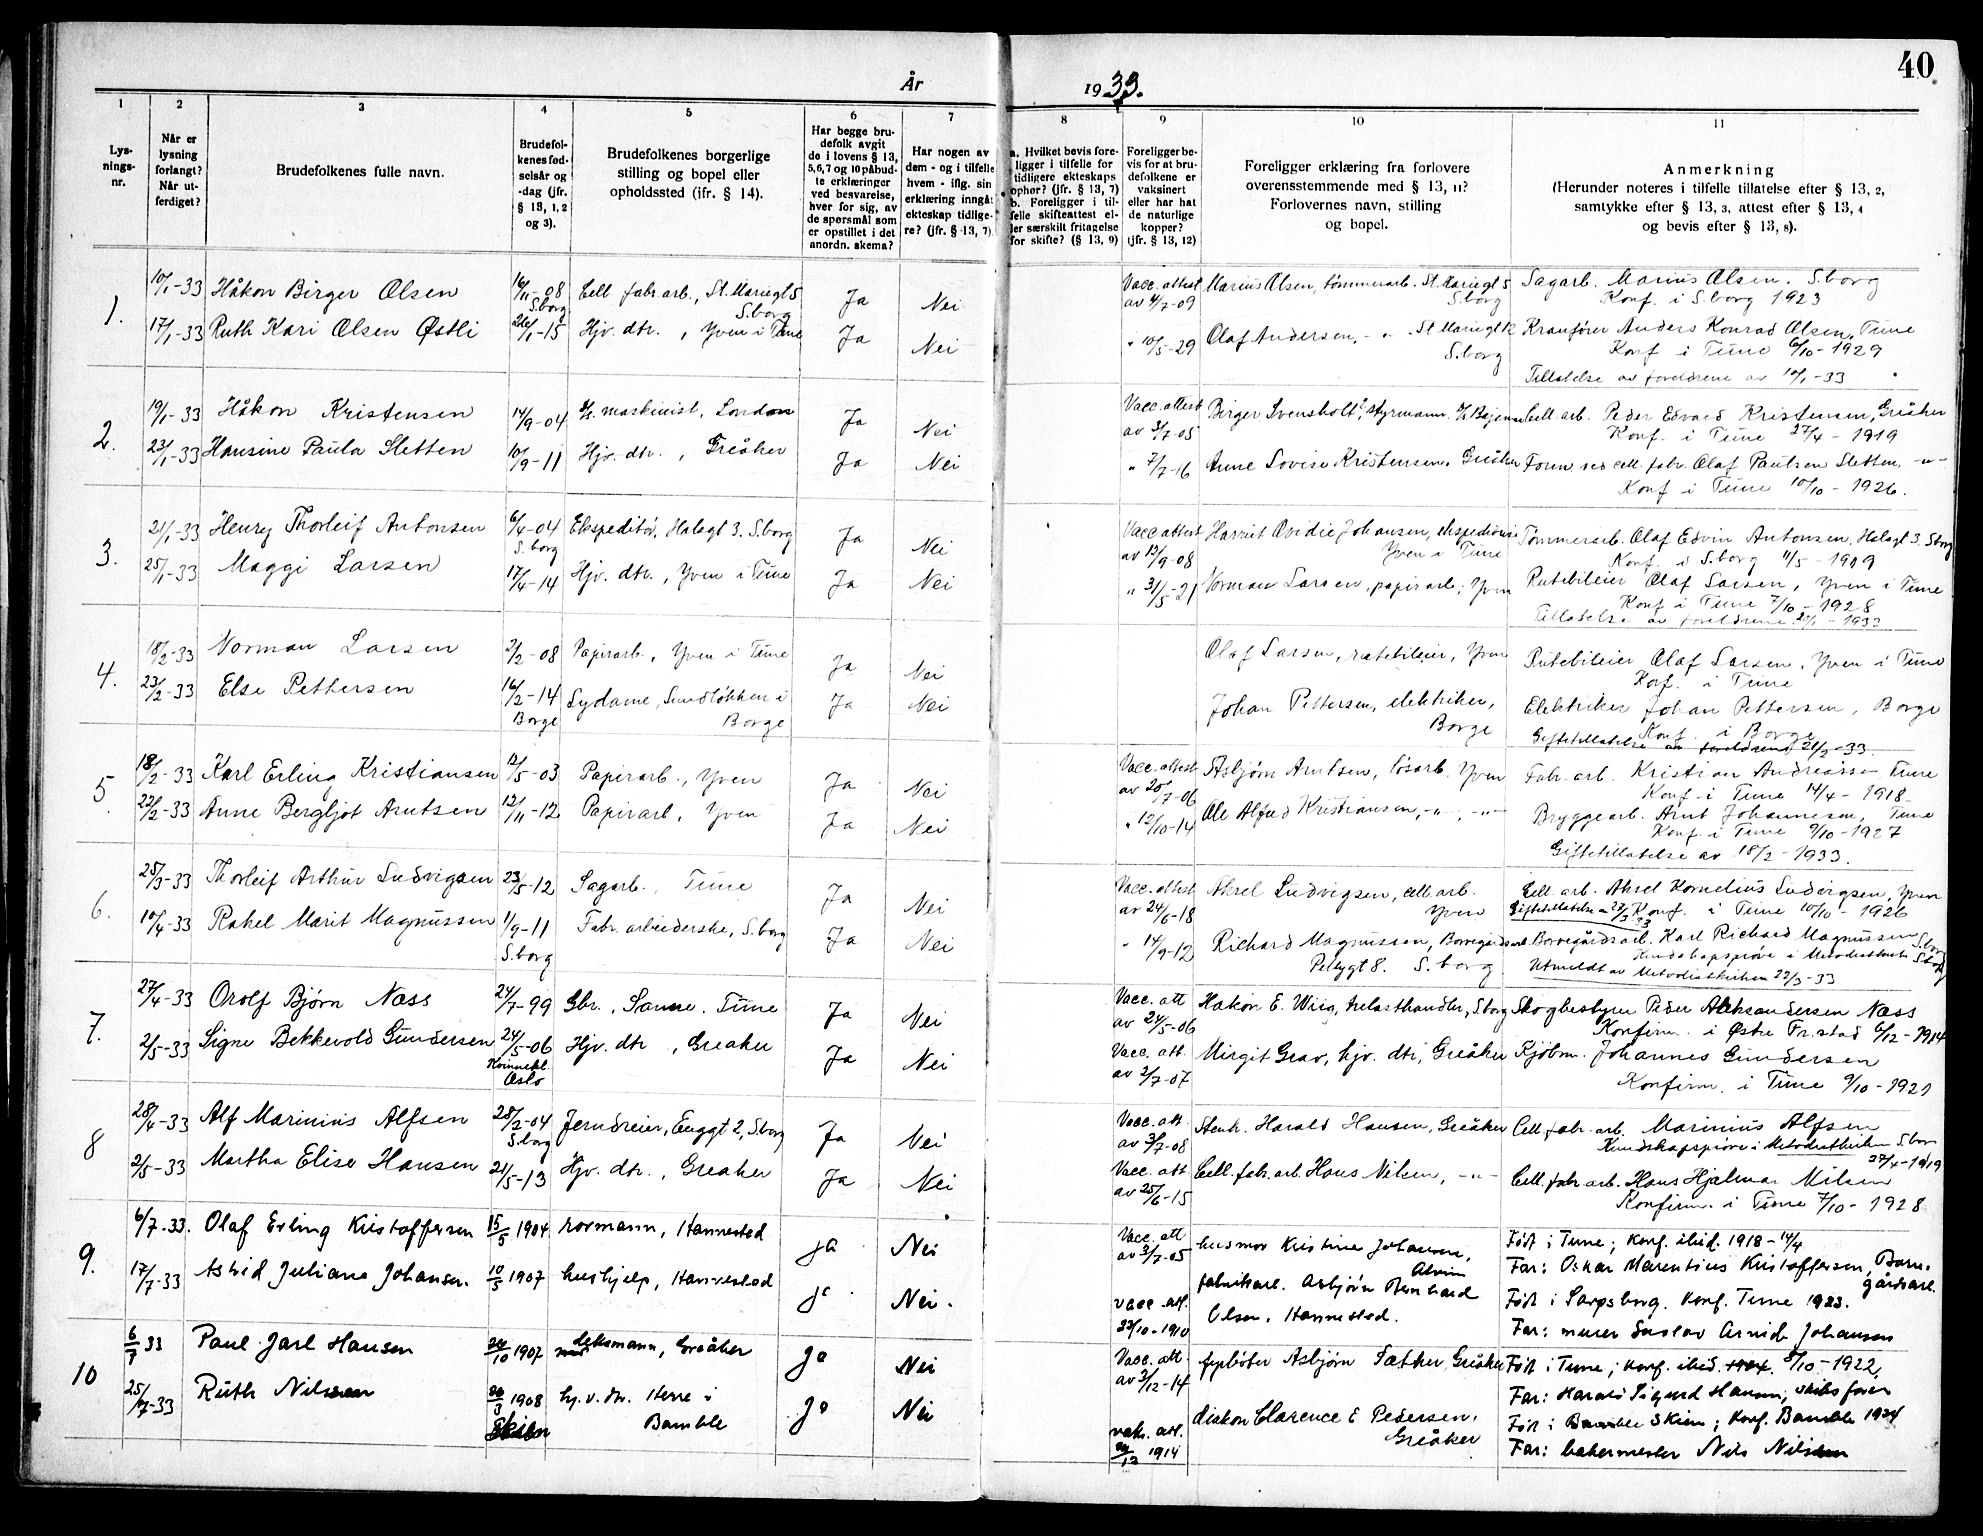 40
År 1933.
1 2 3 4 5 6 7 8 9 10 11
Lys-
nings-
nr.
Når er
lysning
forlangt?
Når ut-
ferdiget?
Brudefolkenes fulle navn.
Brudefol-
kenes fød-
selsår og
-dag (jfr.
§ 13, 1, 2
og 3).
Brudefolkenes borgerlige
stilling og bopel eller
opholdssted (jfr. § 14).
Har begge bru-
defolk avgit
de i lovens § 13,
5,6,7 og 10 påbud-
te erklæringer
ved besvarelse,
hver for sig, av
de spørsmål som
er opstillet i det
anordn. skema?
Har nogen av
dem - og i tilfelle
hvem - iflg. sin
erklæring inngåt
ekteskap tidlige-
re? (jfr. § 13, 7)
a. Hvilket bevis fore-
ligger i tilfelle for
tidligere ekteskaps
ophør? (jfr. § 13, 7)
b. Foreligger i til-
felle skifteattest el-
ler særskilt fritagelse
for skifte? (§ 13, 9)
Foreligger be-
vis for at bru-
defolkene er
vaksinert
eller har hat
de naturlige
kopper?
(jfr. § 13, 12)
Foreligger erklæring fra forlovere
overensstemmende med § 13, 11?
Forlovernes navn, stilling
og bopel.
Anmerkning
(Herunder noteres i tilfelle tillatelse efter § 13, 2,
samtykke efter § 13, 3, attest efter § 13, 4
og bevis efter § 13, 8).
1.
10/1-33 Håkon Birger Olsen 14/11-08 S.borg Cell. fabr. arb., St. Mariegt 5 S.borg Ja Nei
Vacc. attest av 4/7-09 Marius Olsen, tømmerarb. St. Mariegt 5 S.borg
Sagarb. Marius Olsen. S.borg
Konf. i S.borg 1923
17/1-33 Ruth Kari Olsen Østli 26/1-15 Hjv. dtr., Yven i Tune Ja Nei
" 10/5-29 Olaf Andersen, - " - St. Mariegt 12 S.borg
Kranfører Anders Konrad Olsen, Tune
Konf i Tune 6/10-1929
Tillatelse av foreldrene av 10/1-33
2.
19/1-33 Håkon Kristensen 14/9-04 maskinist, London Ja Nei
Vacc. attest av 3/7-05 Birger Svensholt, styrmann
Cell. arb. Peder Edvard Kristensen, Greåker
Konf. i Tune 27/4-1919
23/1-33 Hansine Paula Sletten 10/9-11 Hjv. dtr., Greåker Ja Nei
" 7/7-16 Anne Lovise Kristensen, Greåker
Form. ved cell. fabr. Olaf Paulsen Sletten, -"-
Konf i Tune 10/10-1926.
3.
21/1-33 Henry Thorleif Antonsen 6/4-04 S.borg Ekspeditør, Halsgt 3. S.borg Ja Nei
Vacc attest av 12/9-08 Harriet Ovidie Johansen, Yven i Tune
Tømmerarb. Olaf Edvin Antonsen, Halsgt 3. S.borg
Konf. i S.borg 11/5-1919
25/1-33 Maggi Larsen 17/4-14 Hjv. dtr., Yven i Tune Ja Nei
" 31/5-21 Norman Larsen, papirarb., Yven
Rutebileier Olaf Larsen, Yven i Tune
Konf i Tune 7/10-1928
Tillatelse av foreldrene 20/1-1933
4.
18/2-33 Norman Larsen 2/2-08 Papirarb., Yven i Tune Ja Nei
Olaf Larsen, rutebileier, Yven
Rutebileier Olaf Larsen, Yven i Tune
Konf. i Tune
23/2-33 Else Pettersen 16/2-14 Borge Sydame, Sundløkken i Borge Ja Nei
Johan Pettersen, elektriker, Borge
Elektriker Johan Pettersen, Borge
Konf. i Borge
Giftetillatelse av foreldrene 21/2-33
5
18/2-33 Karl Erling Kristiansen 12/5-03 Papirarb., Yven Ja Nei
Vacc. attest av 20/7-06 Asbjørn Arntsen, løsarb. Yven
Fabr. arb. Kristian Andreassen Tune
Konf. i Tune 14/4-1918
22/2-33 Anne Bergljot Arntsen 12/11-12 Papirarb, Yven Ja Nei
" 12/10-14 Ole Alfred Kristiansen, -"-, -"-
Bryggearb. Arnt Johannesen, Tune
Konf. i Tune 9/10-1927
Giftetillatelse av 18/2-1933.
6.
25/3-33 Thorleif Arthur Ludvigsen 23/5-12 Sagarb. Tune Ja Nei
Vacc. attest av 24/6-18 Aksel Ludvigsen, cell. arb. Yven
Cell. arb. Aksel Kornelius Ludvigsen, Yven
Giftetillatelse Konf. i Tune 10/10-1926
10/4-33 Rakel Marit Magnussen 11/9-11 S.borg Fabr. arbeiderske, S.borg Ja Nei
" 14/9-12 Richard Magnussen, Borregårdsarb. Pellygt 8. S.borg
Borregårdsarb. Karl Richard Magnussen S.borg
Kundskapsprøve i Metodistkirken S.borg
Utmeldt av Metodistkirken 22/3-33
7.
27/4-33 Orolf Bjørn Næss 24/7-99 Gbr., Sanne. Tune Ja Nei
Vacc. att av 24/5-06 Håkon E. Wiig, trelasthandler, S.borg
Skogbestyrer Peder Aleksandersen Næss
Konfirm. i Østre Fr.stad 6/12-1914
2/5-33 Signe Bekkevold Gundersen 24/5-06 Oslo Hjv. dtr, Greåker Ja Nei
Vacc. att. av 2/7-07 Mirgit Grav, hjv. dtr, Greåker
Kjøbm. Johannes Gundersen
Konfirm. i Tune 9/10-1921
8
28/4-33 Alf Marinius Alfsen 28/2-04 S.borg Jerndreier, Enggt 2, S.borg Ja Nei
Vacc. att. av 3/7-08 Stenh. Harald Hansen, Greåker
Cell. fabr. arb. Marinius Alfsen
Kundskapsprøve i Metodistkirken S.borg
27/4-1919
2/5-33 Martha Elise Hansen 21/5-13 Hjv. dtr., Greåker Ja Nei
Vacc. att av 25/6-15 Cell. fabr. arb. Hans Nilsen, -"-
Cell. fabr arb. Hans Hjalmar Nilsen
Konfirm. i Tune 7/10-1928
9.
6/7-33. Olaf Erling Kristoffersen 15/5 1904 rormann, Hannestad ja Nei
Vacc. att av 3/7-05 husmor Kristine Johansen,
Født i Tune; konf. ibid. 1918-14/4
Far: Oskar Marentius Kristoffersen, Borre-
gårdsarb.
17/7-33 Astrid Juliane Johansen. 10/5 1907 hushjelp, Hannestad ja Nei.
vacc. att. 23/10-1910 fabrikarb. Asbjørn Bernhard Alvin Olsen, Hannestad.
Født i Sarpsborg. Konf. Tune 1923.
Far: murer Gustav Arvid Johansen
10
6/7 33 Paul Jarl Hansen 20/10 1907 dekksmann, Greåker Ja Nei
Vacc. att av 3/12-14 fyrbøter Asbjørn Sæther, Greåker
Født i Tune; konf. ibid. 8/10-1922,
Far: Harald Sigurd Hansen, skibsfører
25/7-33 Ruth Nilssen 20/3 1908 Skien hj. v. dtr. Herre i Bamble Ja Nei
vak. att. 1914 diakon Clarence E Pedersen, Greåker
Født i Skien; konf. Bamble 1924
Far: bakermester Nils Nilssen